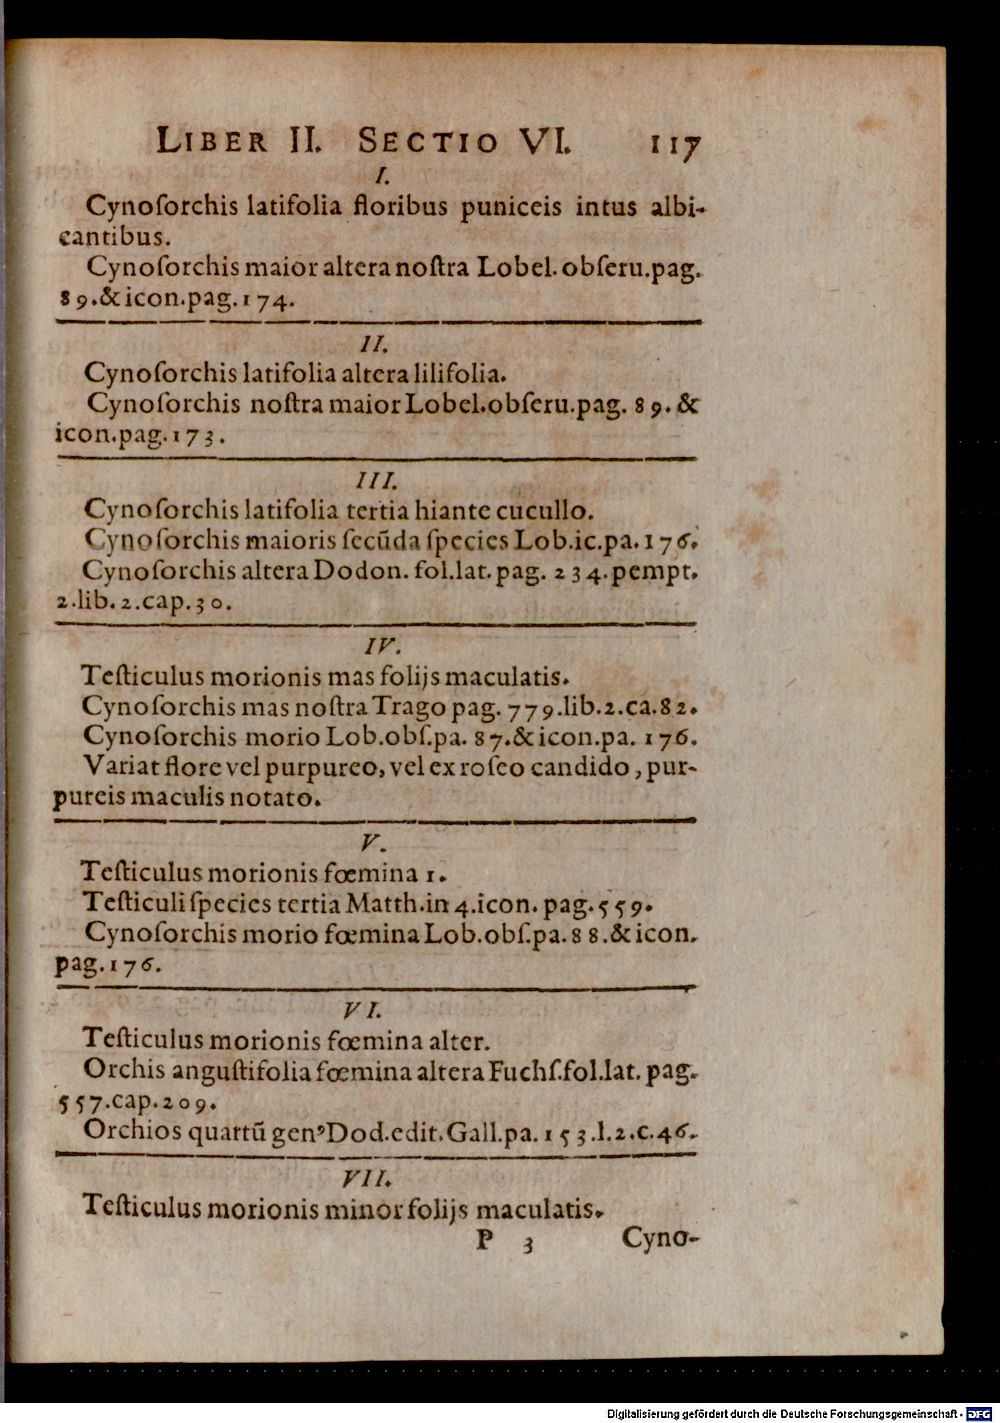 LIBER II. SECTIO VI. 117
I.
Cynoſorchis latifolia floribus puniceis intus albi-
cantibus.
Cynoſorchis maior altera noſtra Lobel. obſeru.pag.
89.& icon.pag.174.
II.
Cynoſorchis latifolia altera lilifolia.
Cynoſorchis noſtra maior Lobel.obſeru.pag. 89. &
icon.pag.173.
III.
Cynoſorchis latifolia tertia hiante cucullo.
Cynoſorchis maioris ſecūda ſpecies Lob.ic.pa.176.
Cynoſorchis altera Dodon. fol.lat.pag. 234.pempt.
2.lib.2.cap.30.
IV.
Teſticulus morionis mas folijs maculatis.
Cynoſorchis mas noſtra Trago pag. 779.lib.2.ca.82.
Cynoſorchis morio Lob.obſ.pa. 87.& icon.pa. 176.
Variat flore vel purpureo, vel ex roſeo candido, pur-
pureis maculis notato.
V.
Teſticulus morionis fœmina 1.
Teſticuli ſpecies tertia Matth.in 4.icon. pag.559.
Cynoſorchis morio fœmina Lob.obſ.pa.88.& icon.
pag.176.
VI.
Teſticulus morionis fœmina alter.
Orchis anguſtifolia fœmina altera Fuchſ.fol.lat. pag.
557.cap.209.
Orchios quartū genꝰ Dod.edit.Gall.pa. 153.l.2.c.46.
VII.
Teſticulus morionis minor folijs maculatis.
P 3 Cyno-
Digitalisierung gefördert durch die Deutsche Forschungsgemeinschaft - DFG